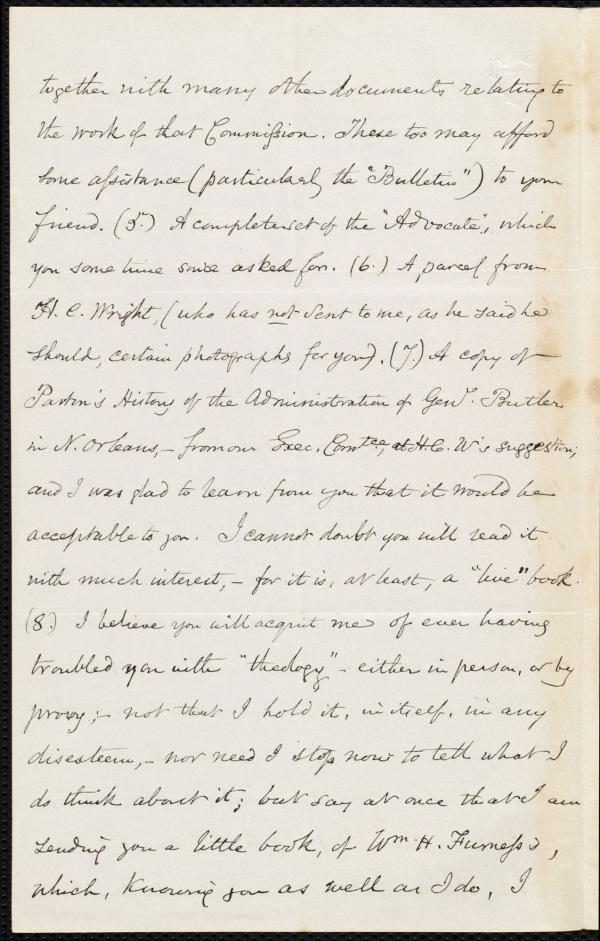 together with many other documents relating to
the work of that Commission. These too may afford
some assistance (particularly the "Bulletin") to your
friend. (5.) A complete set of the "Advocate", which
you some time since asked for. (6.) A parcel from
H. C. Wright, (who has not sent to me, as he said he
should, certain photographs for you). (7.) A copy of
Parton's History of the Administration of Genl. Butler
in N. Orleans, – from our Exec. Comtee, at H. C. W's suggestion;
and I was glad to learn from you that it would be
acceptable to you. I cannot doubt you will read it
with much interest, – for it is, at least, a "live" book.
(8.) I believe you will acquit me of ever having
troubled you with "theology" – either in person, or by
proxy; – not that I hold it, in itself, in any
disesteem, – nor need I stop now to tell what I
do think about it; but say at once that I am
sending you a little book, of Wm. H. Furness's,
which, knowing you as well as I do, I